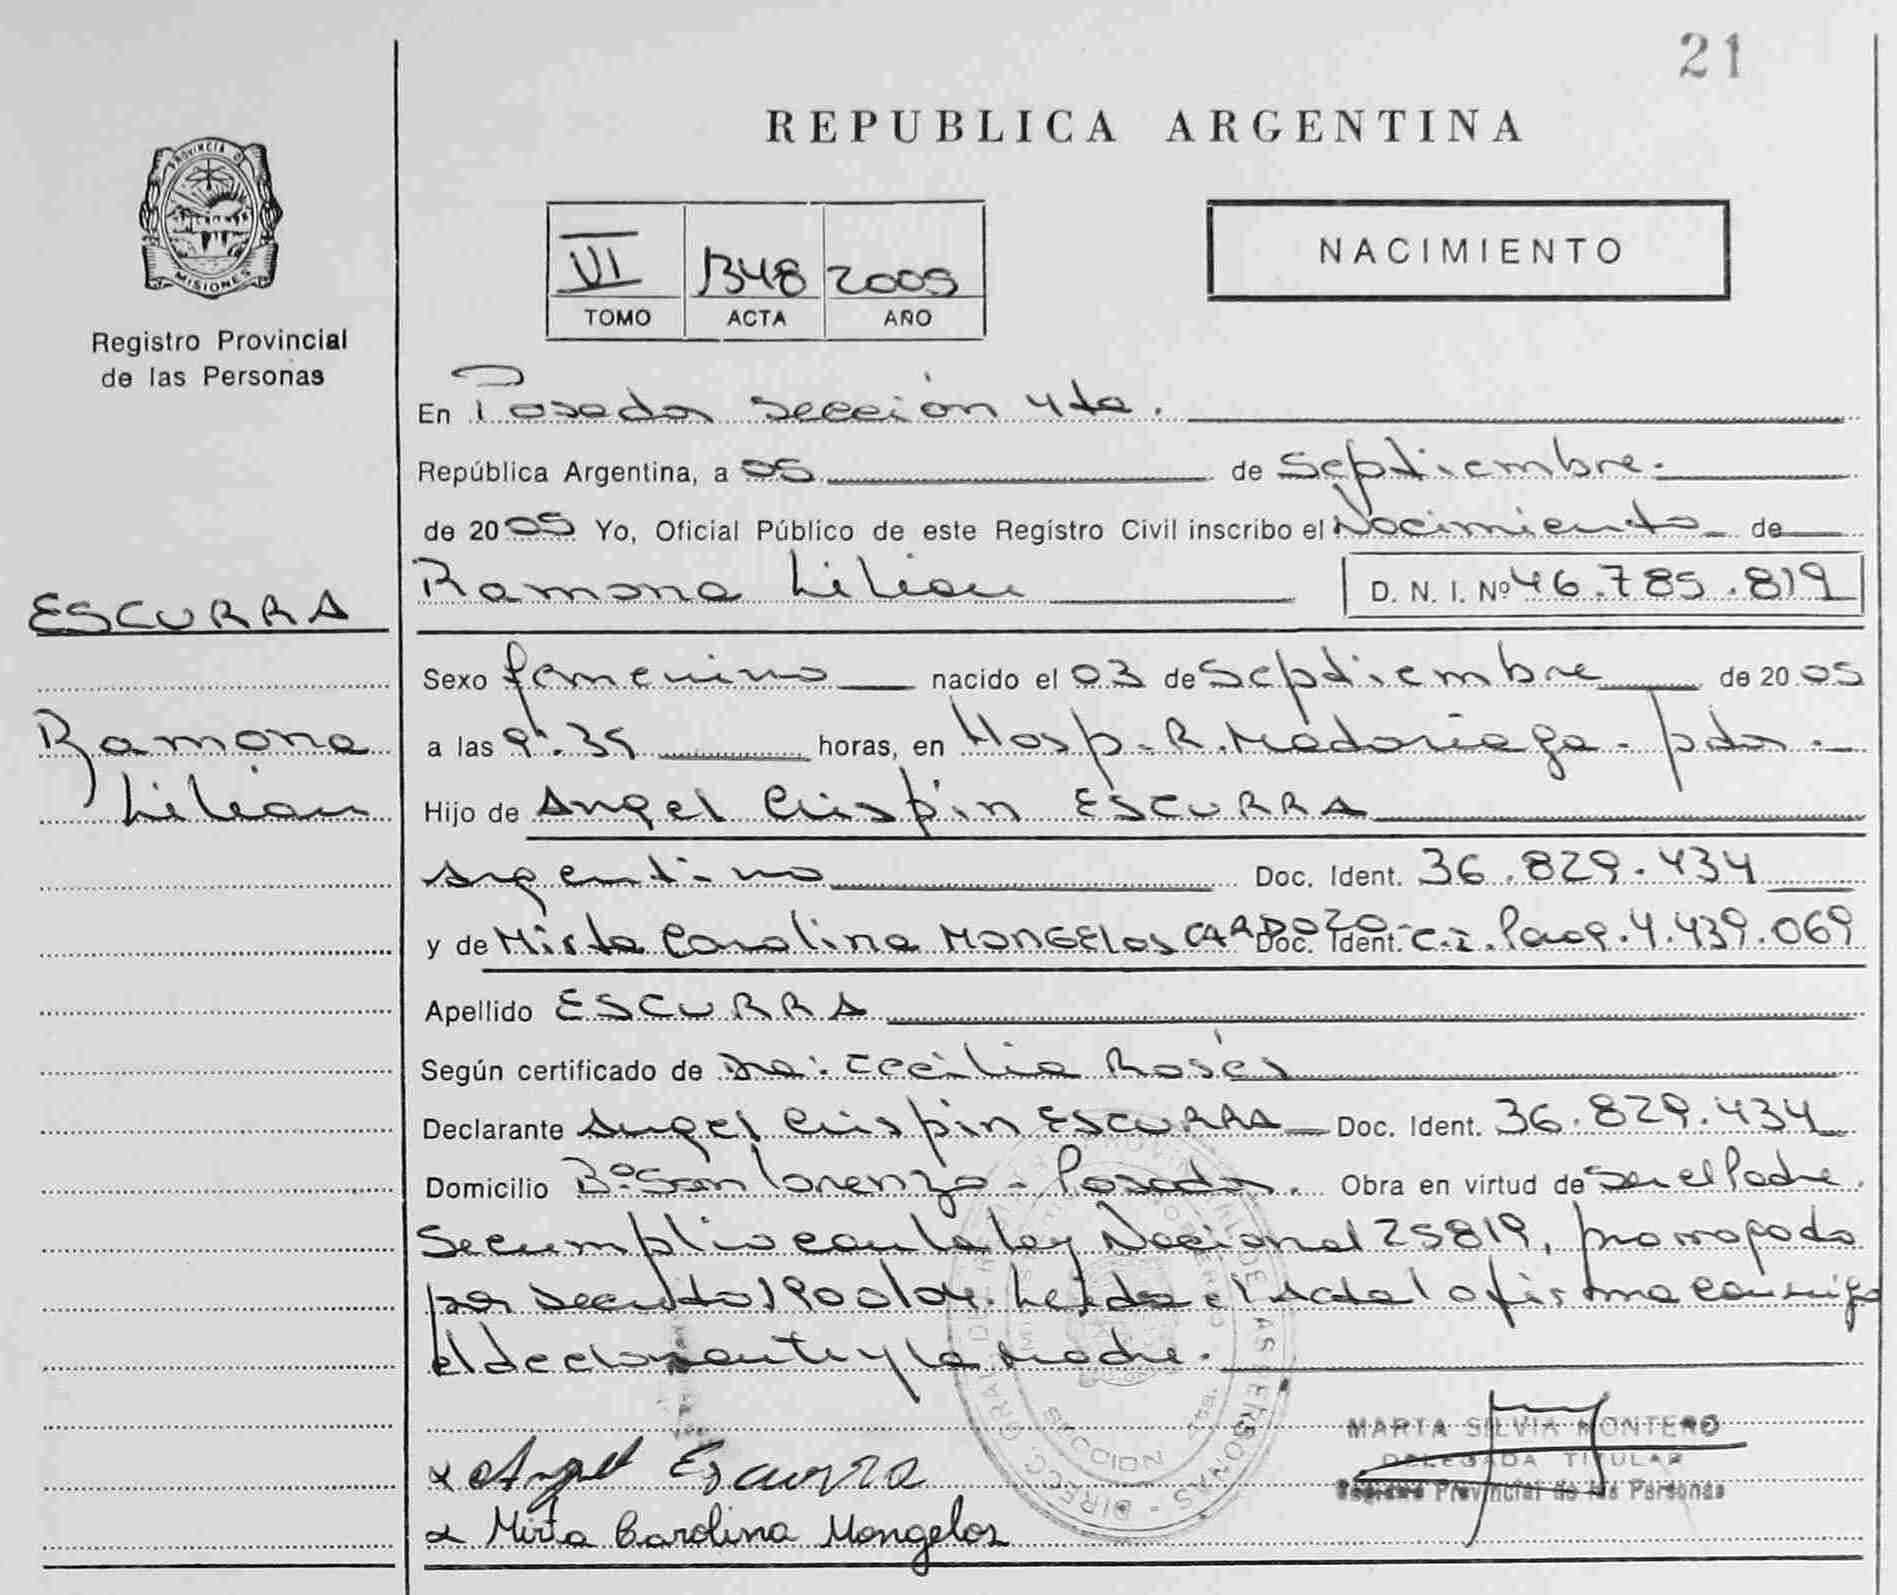 21
REPUBLICA ARGENTINA
PROVINCIA DE
MISIONES
Registro Provincial
de las Personas
VI 1348 2005
TOMO ACTA AÑO
NACIMIENTO
En Posadas sección 4ta.
República Argentina, a 05 de Septiembre.
de 2005 Yo, Oficial Público de este Registro Civil inscribo el Nacimiento de
Ramona Lilian D. N. I. Nº 46.785.819
ESCURRA
Ramona
Lilian
Sexo femenino nacido el 03 de Septiembre de 2005
a las 9h.35 horas, en Hosp. R. Madariaga - pdas.
Hijo de Angel Crispin ESCURRA
Argentino Doc. Ident. 36.829.434
y de Mirta Carolina MONGELOS CARDOZO Doc. Ident. C.I. Parag. 4.439.069
Apellido ESCURRA
Según certificado de Dra: Cecilia Rosés
Declarante Angel Crispin ESCURRA Doc. Ident. 36.829.434
Domicilio Bº San Lorenzo - Posadas. Obra en virtud de ser el Padre.
Se cumplio con la ley Nacional 25819, prorrogada
por Decreto 1900/04. Leida el Acta la firma conmigo
el declarante y la Madre.
MARTA SILVIA MONTERO
DELEGADA TITULAR
Registro Provincial de las Personas
x Angel Escurra
x Mirta Carolina Mongelos